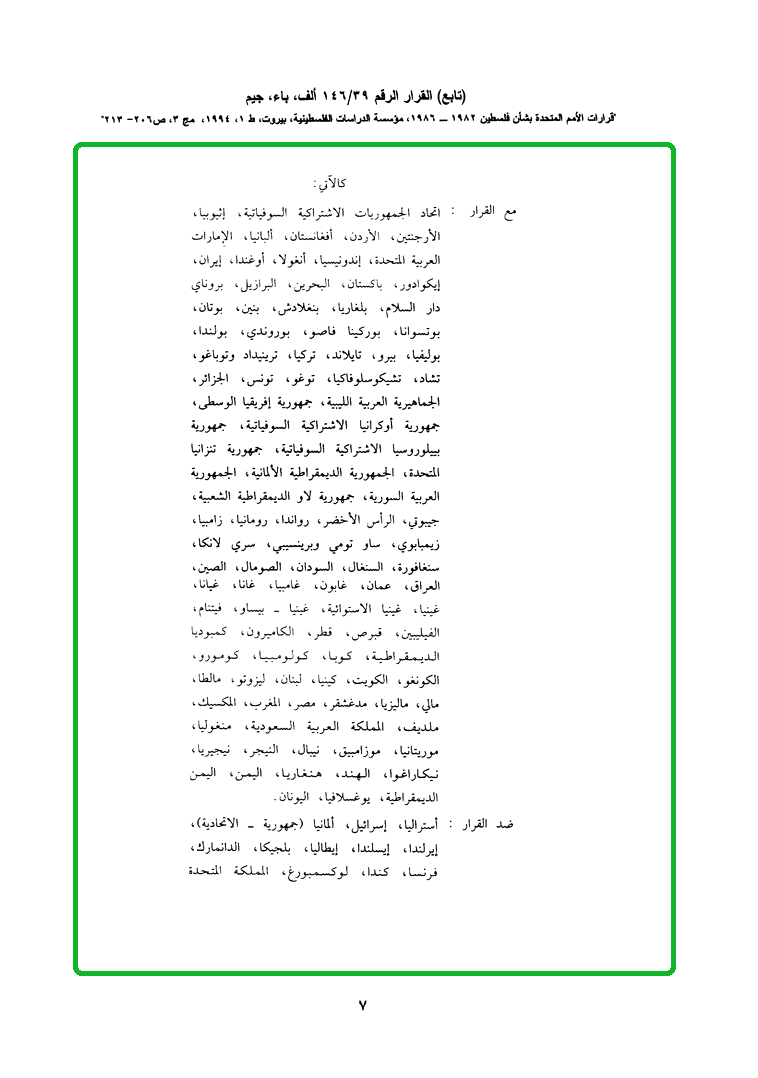 (تابع) القرار الرقم ١٤٦/٣٩ ألف، باء، جيم
"قرارات الأمم المتحدة بشأن فلسطين ١٩٨٢ ــ ١٩٨٦، مؤسسة الدراسات الفلسطينية، بيروت، ط ١، ١٩٩٤، مج ٣، ص٢٠٦- ٢١٣"
كالآتي:
مع القرار : اتحاد الجمهوريات الاشتراكية السوفياتية، إثيوبيا،
الأرجنتين، الأردن، أفغانستان، ألبانيا، الإمارات
العربية المتحدة، إندونيسيا، أنغولا، أوغندا، إيران،
إيكوادور، باكستان، البحرين، البرازيل، بروناي
دار السلام، بلغاريا، بنغلادش، بنين، بوتان،
بوتسوانا، بوركينا فاصو، بوروندي، بولندا،
بوليفيا، بيرو، تايلاند، تركيا، ترينيداد وتوباغو،
تشاد، تشيكوسلوفاكيا، توغو، تونس، الجزائر،
الجماهيرية العربية الليبية، جمهورية إفريقيا الوسطى،
جمهورية أوكرانيا الاشتراكية السوفياتية، جمهورية
بييلوروسيا الاشتراكية السوفياتية، جمهورية تنزانيا
المتحدة، الجمهورية الديمقراطية الألمانية، الجمهورية
العربية السورية، جمهورية لاو الديمقراطية الشعبية،
جيبوتي، الرأس الأخضر، رواندا، رومانيا، زامبيا،
زيمبابوي، ساو تومي وبرينسيبي، سري لانكا،
سنغافورة، السنغال، السودان، الصومال، الصين،
العراق، عمان، غابون، غامبيا، غانا، غيانا،
غينيا، غينيا الاستوائية، غينيا ــ بيساو، فيتنام،
الفيليبين، قبرص، قطر، الكاميرون، كمبوديا
الديمقراطية، كوبا، كولومبيا، كومورو،
الكونغو، الكويت، كينيا، لبنان، ليزوتو، مالطا،
مالي، ماليزيا، مدغشقر، مصر، المغرب، المكسيك،
ملديف، المملكة العربية السعودية، منغوليا،
موريتانيا، موزامبيق، نيبال، النيجر، نيجيريا،
نيكاراغوا، الهند، هنغاريا، اليمن، اليمن
الديمقراطية، يوغسلافيا، اليونان.
ضد القرار : أستراليا، إسرائيل، ألمانيا (جمهورية ــ الاتحادية)،
إيرلندا، إيسلندا، إيطاليا، بلجيكا، الدانمارك،
فرنسا، كندا، لوكسمبورغ، المملكة المتحدة
٧